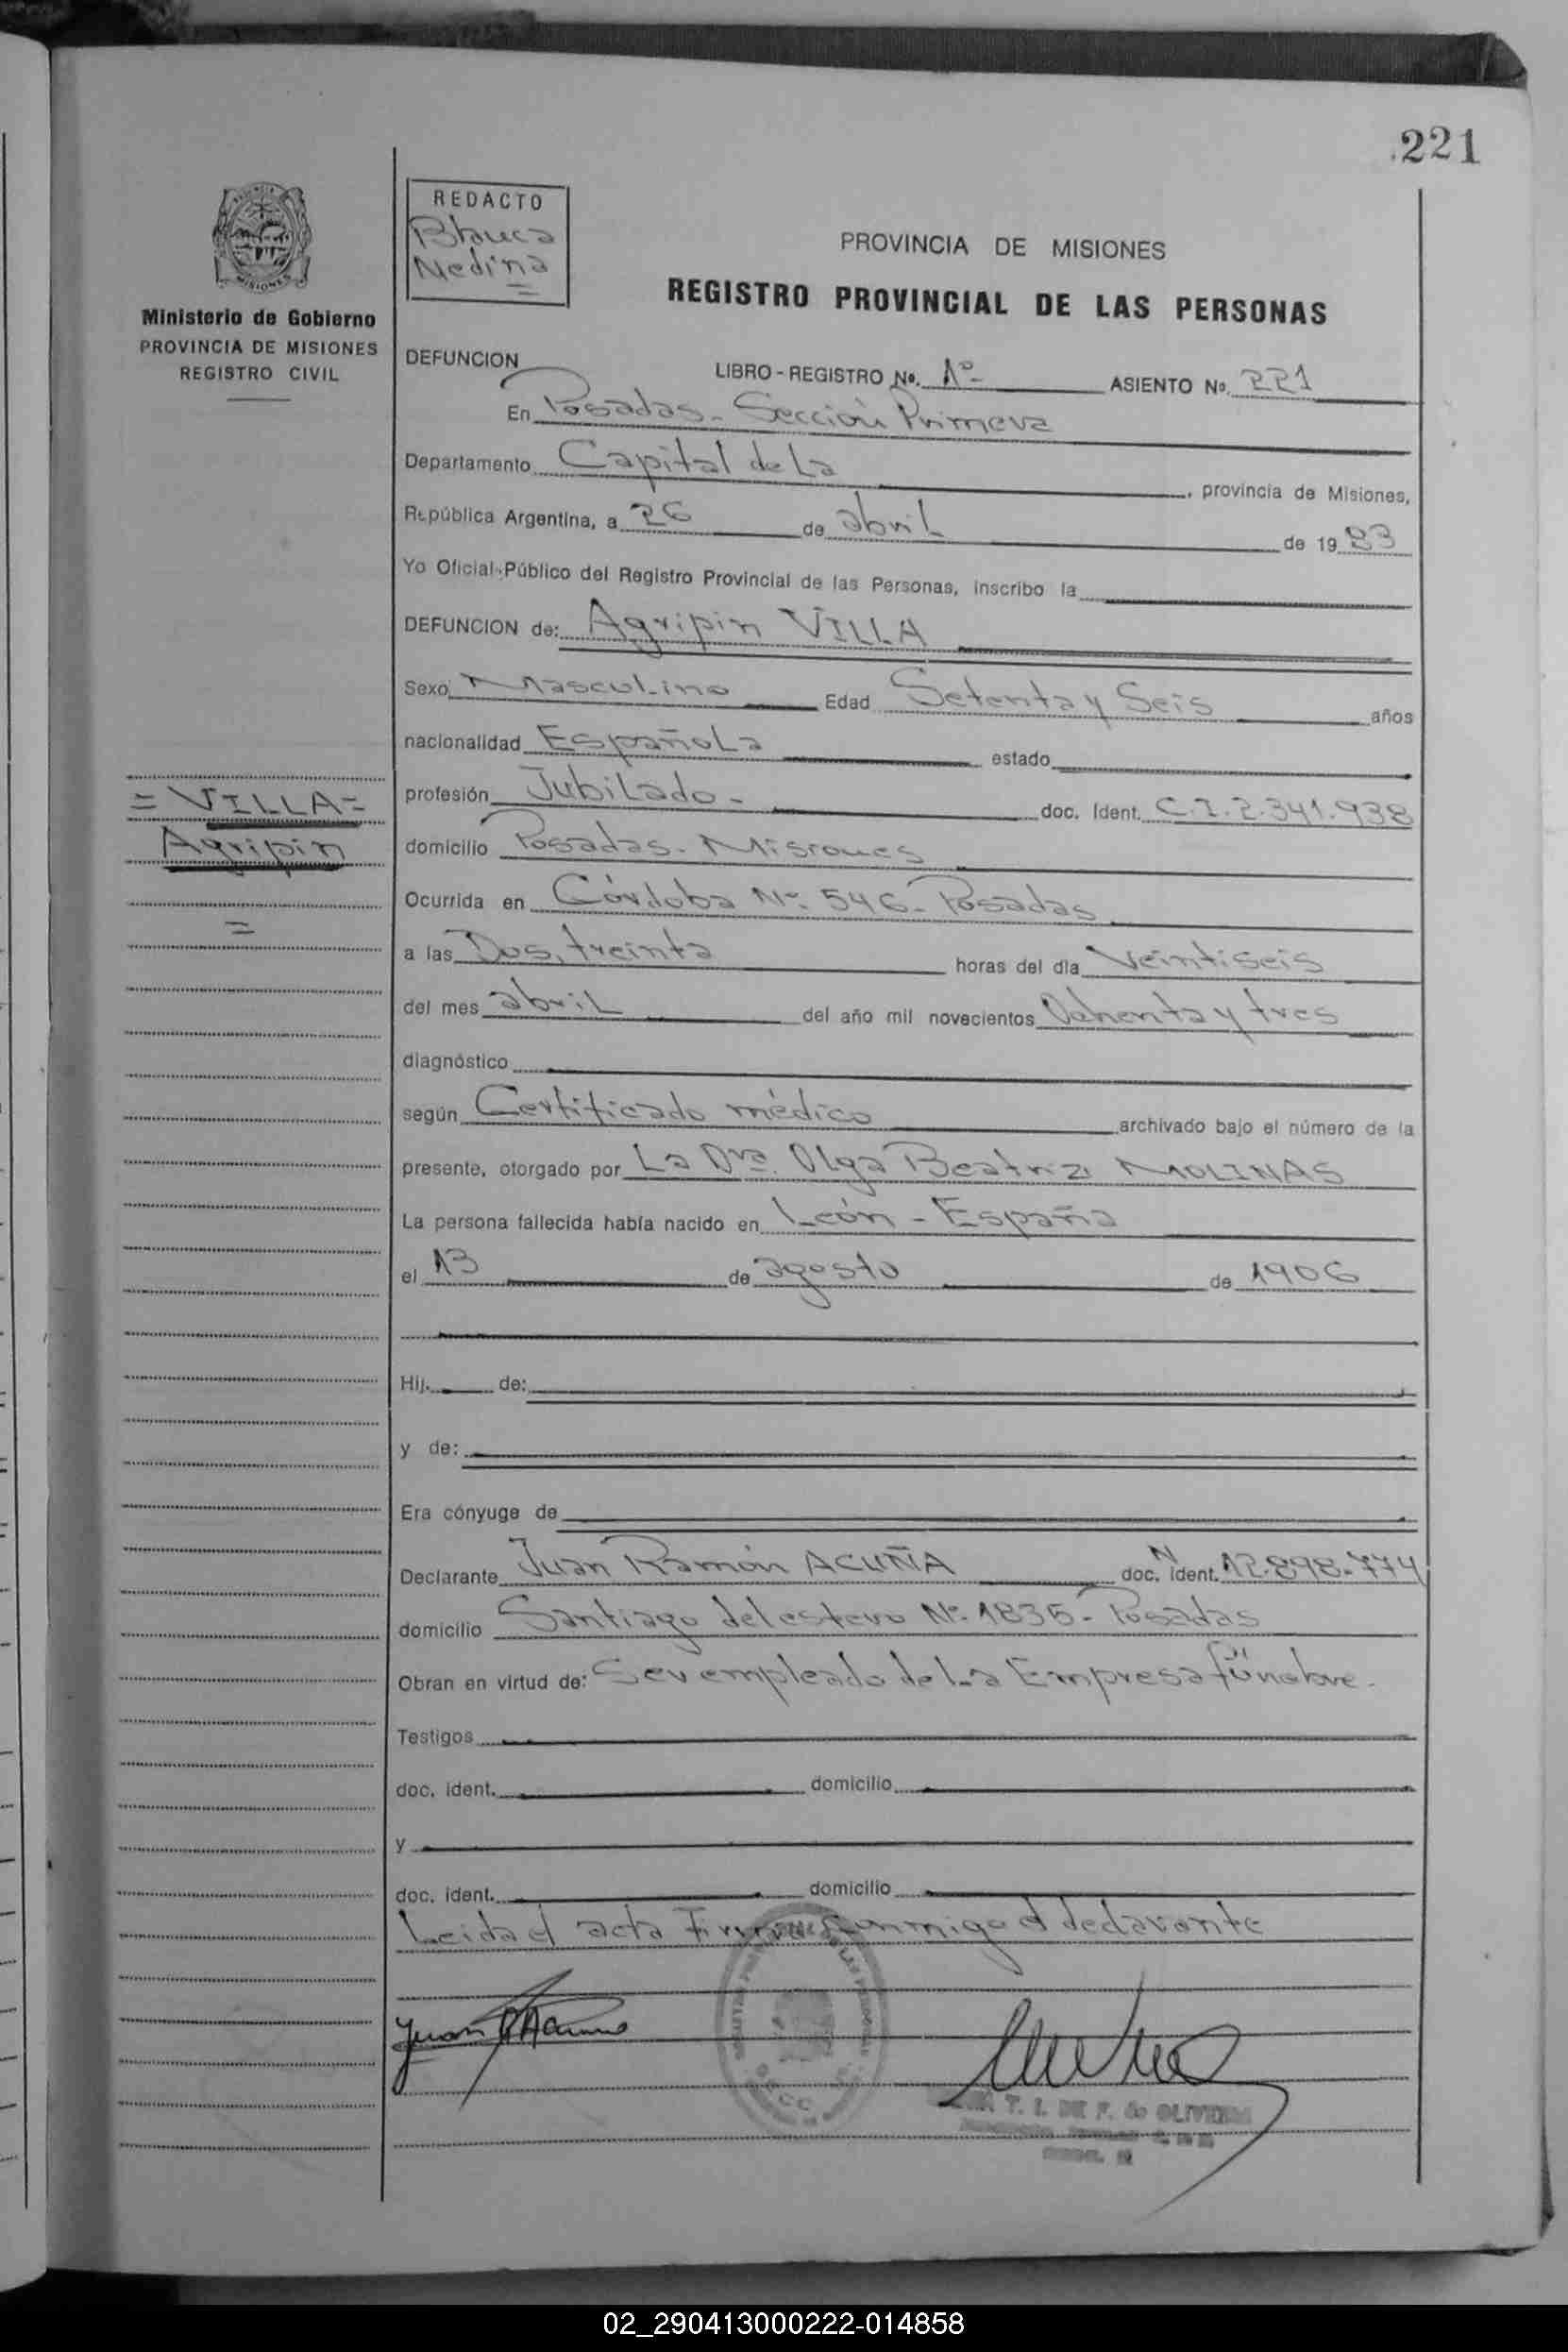 221
REDACTO
Blanca
Medina
PROVINCIA DE MISIONES
REGISTRO PROVINCIAL DE LAS PERSONAS
MISIONES
Ministerio de Gobierno
PROVINCIA DE MISIONES
REGISTRO CIVIL
DEFUNCION
LIBRO - REGISTRO No. 1º- ASIENTO No. 221
En Posadas - Sección Primera
Departamento Capital de La , provincia de Misiones,
República Argentina, a 26 de abril de 1983
Yo Oficial Público del Registro Provincial de las Personas, inscribo la
DEFUNCION de: Agripin VILLA
Sexo Masculino Edad Setenta y Seis años
nacionalidad Española estado
= VILLA =
Agripin
=
profesión Jubilado - doc. Ident. C.I. 2.341.938
domicilio Posadas - Misiones
Ocurrida en Córdoba Nº 546 - Posadas
a las Dos, treinta horas del día Veintiseis
del mes abril del año mil novecientos Ochenta y tres
diagnóstico
según Certificado médico archivado bajo el número de la
presente, otorgado por La Dra. Olga Beatriz MOLINAS
La persona fallecida había nacido en León - España
el 13 de agosto de 1906
Hij. de:
y de:
Era cónyuge de
Declarante Juan Ramón ACUÑA doc. N ident. 12.898.774
domicilio Santiago del estero Nº 1835 - Posadas
Obran en virtud de: Ser empleado de La Empresa fúnebre.
Testigos
doc. ident. domicilio
y
doc. ident. domicilio
Leida el acta Firma Conmigo el declarante
Juan R Acuña
T. I. DE F. de OLIVEIRA
02_290413000222-014858